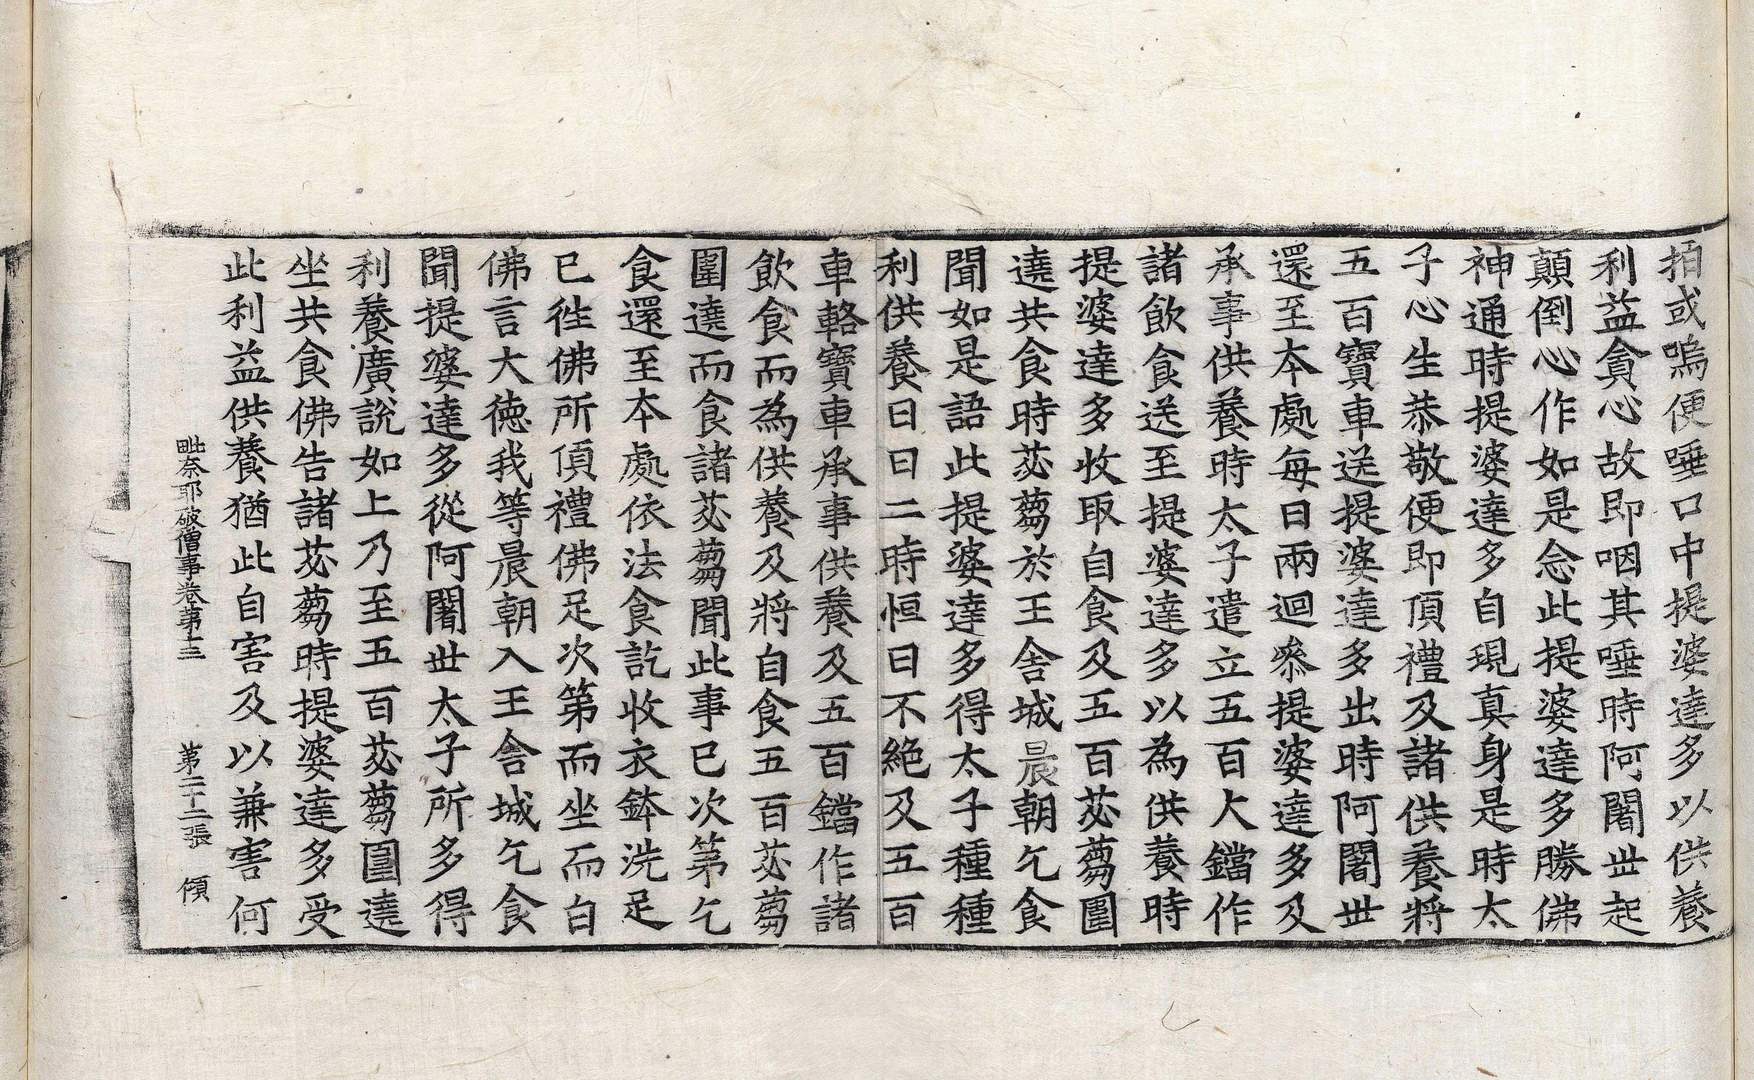 拍或嗚便唾口中提婆達多以供養
利益貪心故即咽其唾時阿闍世起
顛倒心作如是念此提婆達多勝佛
神通時提婆達多自現真身是時太
子心生恭敬便即頂禮及諸供養將
五百寶車送提婆達多出時阿闍世
還至本處每日兩迴叅提婆達多及
承事供養時太子遣立五百大鐺作
諸飲食送至提婆達多以為供養時
提婆達多收取自食及五百苾蒭圍
遶共食時苾蒭於王舍城晨朝乞食
聞如是語此提婆達多得太子種種
利供養日日二時恒日不絕及五百
車輅寶車承事供養及五百鐺作諸
飲食而為供養及將自食五百苾蒭
圍遶而食諸苾蒭聞此事已次第乞
食還至本處依法食訖收衣鉢洗足
已徃佛所頂禮佛足次第而坐而白
佛言大德我等晨朝入王舍城乞食
聞提婆達多從阿闍世太子所多得
利養廣說如上乃至五百苾蒭圍遶
坐共食佛告諸苾蒭時提婆達多受
此利益供養猶此自害及以兼害何
毗奈耶破僧事卷第十三　第二十二張　傾